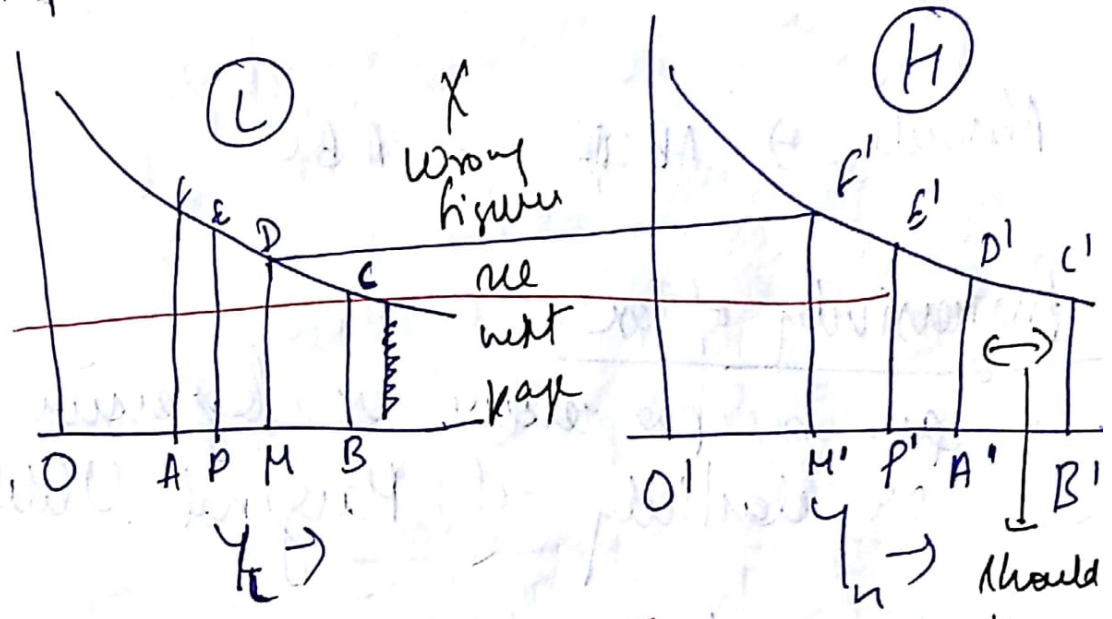 L
H
X
Wrong
figure
see
next
page
F E D C
F' E' D' C'
O A P M B
O' M' P' A' B'
Y_L →
Y_H →
should